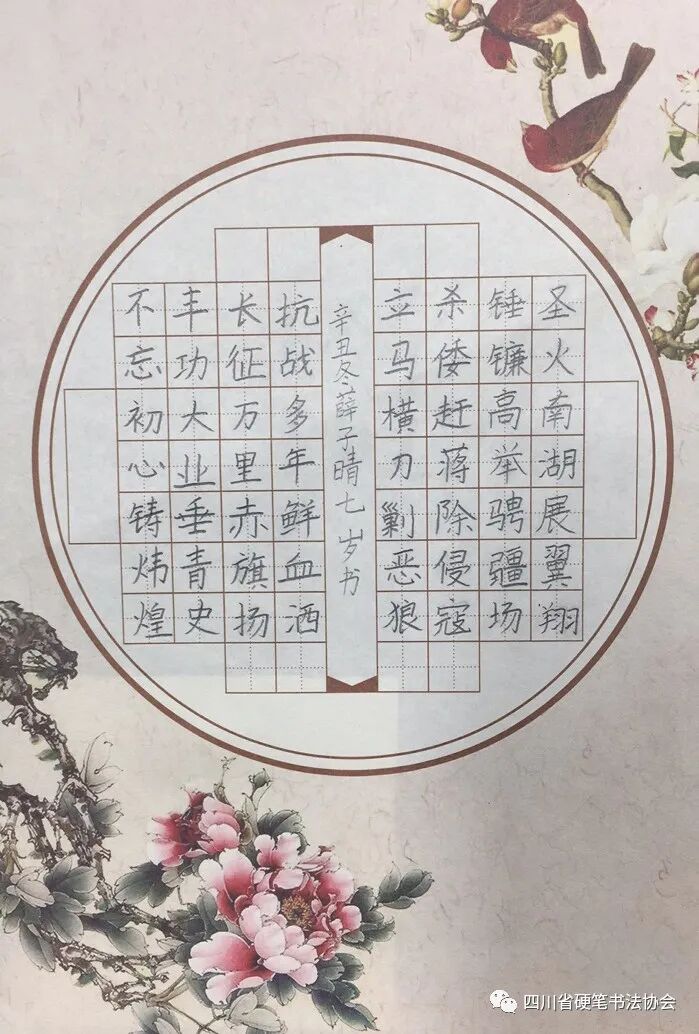 圣火南湖展翼翔
锤镰高举骋疆场
杀倭赶蒋除侵寇
立马横刀剿恶狼
辛丑冬薛子晴七岁书
抗战多年鲜血洒
长征万里赤旗扬
丰功大业垂青史
不忘初心铸炜煌
四川省硬笔书法协会